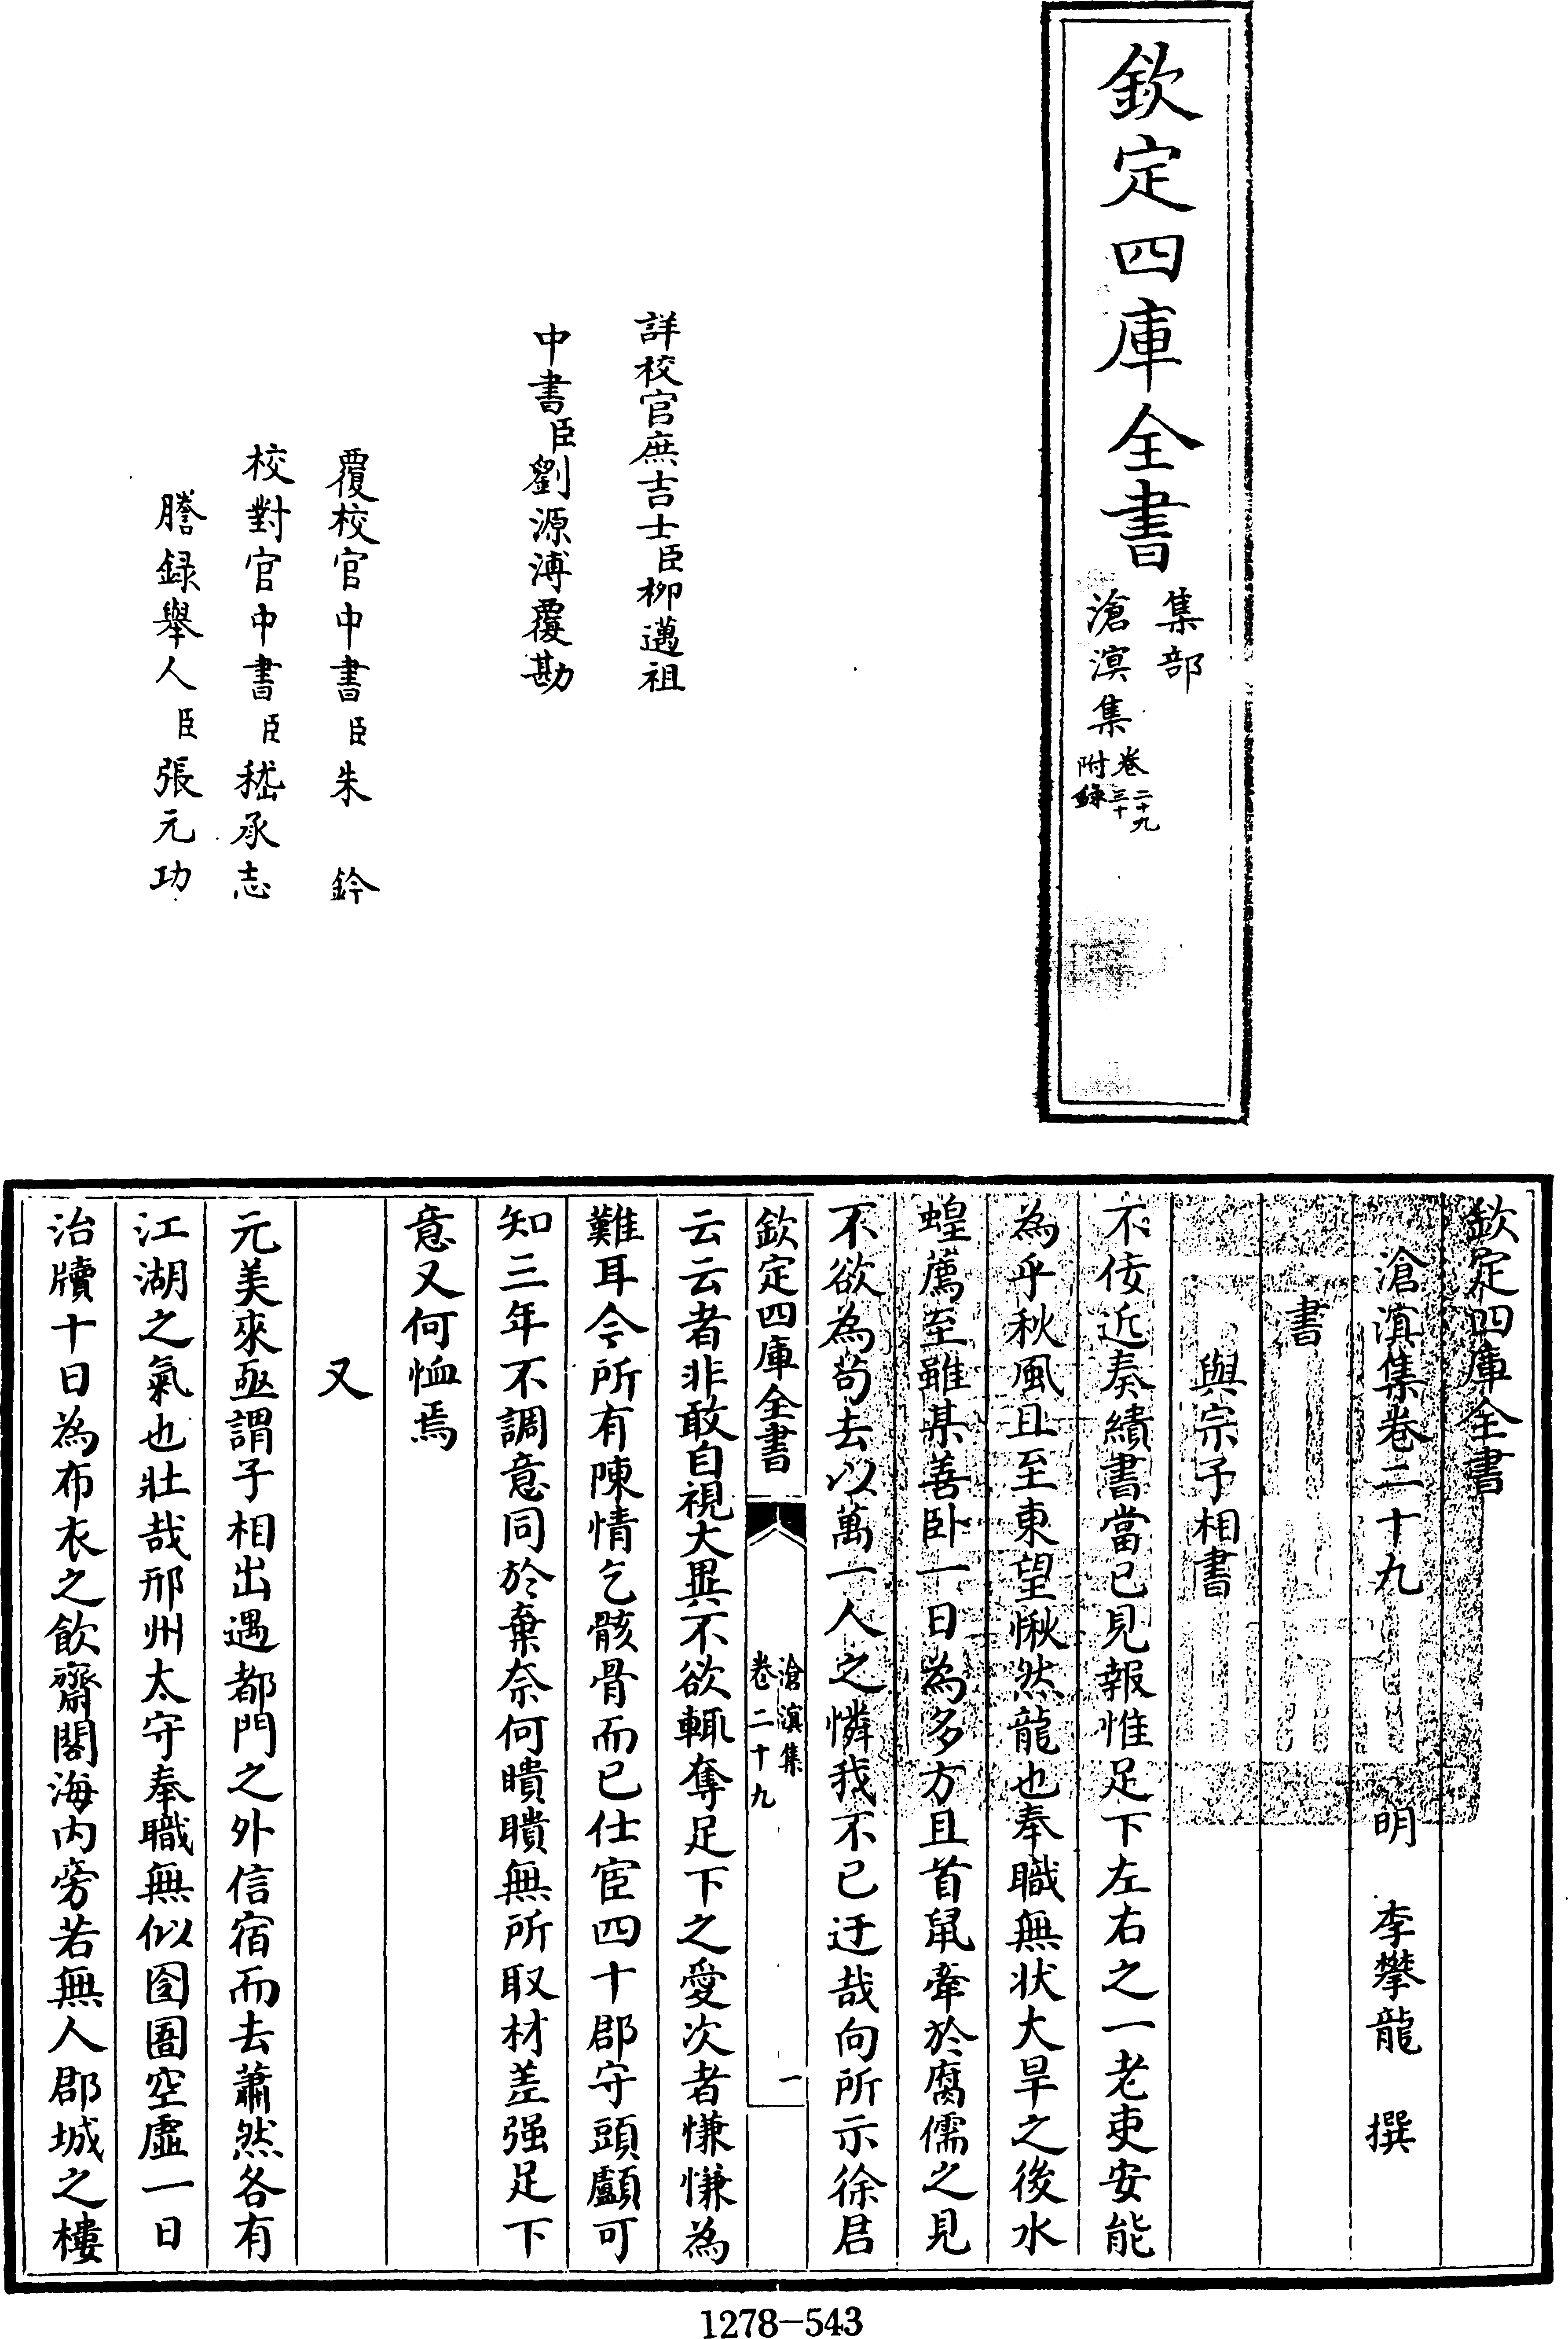 欽定四庫全書
集部
滄溟集
卷二十九
三十
附錄
詳校官庶吉士臣柳邁祖
中書臣劉源溥覆勘
覆校官中書臣朱鈐
校對官中書臣嵇承志
謄録舉人臣張元功
欽定四庫全書
滄溟集卷二十九
明 李攀龍 撰
書
與宗子相書
不佞近奏績書當已見報惟足下左右之一老吏安能
為乎秋風且至東望愀然龍也奉職無状大旱之後水
蝗薦至雖某善卧一日為多方且首䑕牽於腐儒之見
不欲為苟去以萬一人之憐我不已迂哉向所示徐君
欽定四庫全書
滄溟集
卷二十九
一
云云者非敢自視大異不欲輒奪足下之愛次者慊慊為
難耳今所有陳情乞骸骨而已仕宦四十郡守頭顱可
知三年不調意同於棄奈何瞶瞶無所取材差强足下
意又何恤焉
又
元美來亟謂子相出遇都門之外信宿而去蕭然各有
江湖之氣也壯哉邢州太守奉職無似囹圄空虛一日
治牘十日為布衣之飲齋閣海内旁若無人郡城之樓
1278-543